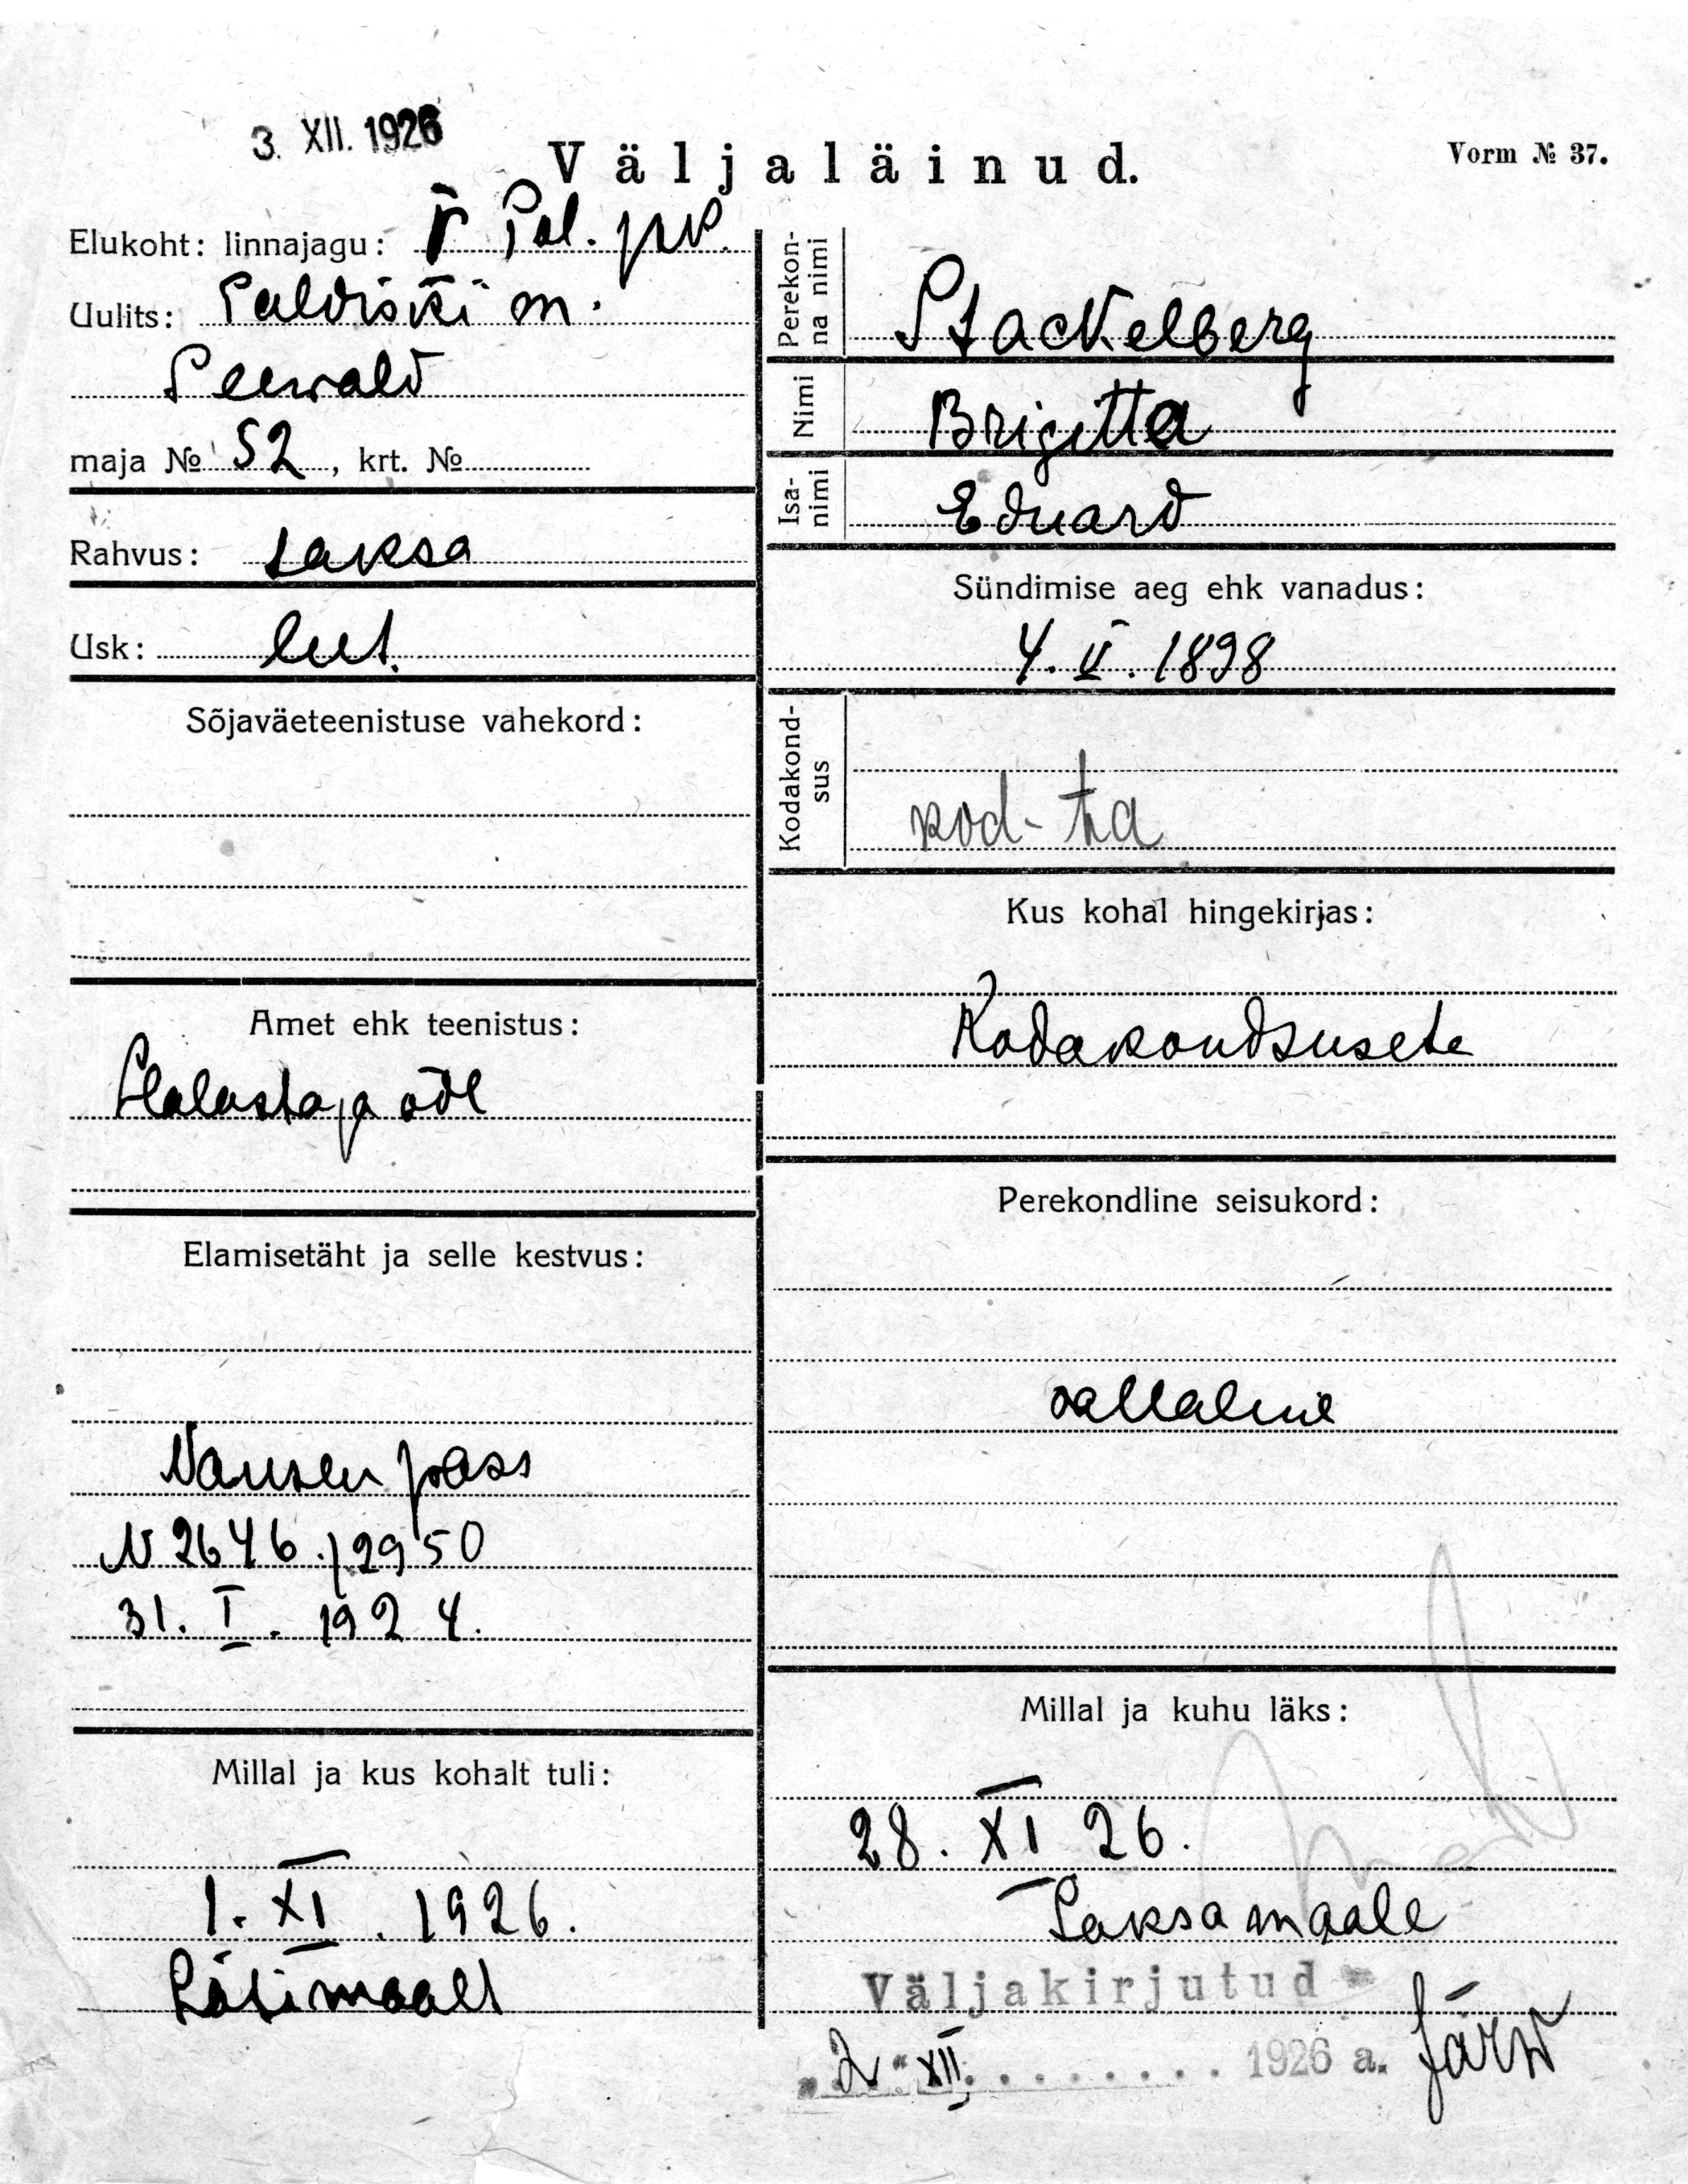 3. XII. 1926
Väljaläinud.
Vorm № 37.
Elukoht: linnajagu: V Pol. jsk.
Uulits: Paldiski m.
Seewald
maja № 52, krt. №
Rahvus: saksa
Usk: lut.
Sõjaväeteenistuse vahekord:
Amet ehk teenistus:
Halastaja õde
Elamisetäht ja selle kestvus:
Nansen pass
N 2646./2950
31. I. 1924.
Millal ja kus kohalt tuli:
1. XI. 1926.
Lätimaalt
Perekon-
na nimi
Stackelberg
Nimi
Brigitta
Isa-
nimi
Eduard
Sündimise aeg ehk vanadus:
4. II. 1898
Kodakond-
sus
kod-ta
Kus kohal hingekirjas:
Kodakondsuseta
Perekondline seisukord:
vallaline
Millal ja kuhu läks:
28. XI 26.
Saksamaale
Väljakirjutud
"2" XII 1926 a. Järw